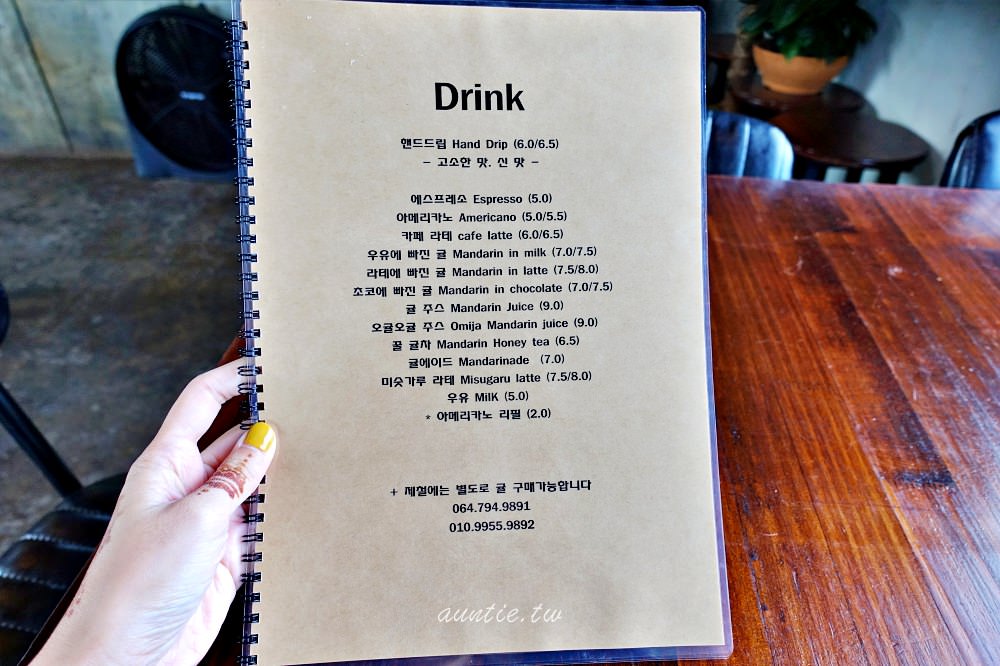 Drink
핸드드립 Hand Drip (6.0/6.5)
- 고소한 맛, 신 맛 -
에스프레소 Espresso (5.0)
아메리카노 Americano (5.0/5.5)
카페 라테 cafe latte (6.0/6.5)
우유에 빠진 귤 Mandarin in milk (7.0/7.5)
라테에 빠진 귤 Mandarin in latte (7.5/8.0)
초코에 빠진 귤 Mandarin in chocolate (7.0/7.5)
귤 주스 Mandarin Juice (9.0)
오귤오귤 주스 Omija Mandarin juice (9.0)
꿀 귤차 Mandarin Honey tea (6.5)
귤에이드 Mandarinade (7.0)
미숫가루 라테 Misugaru latte (7.5/8.0)
우유 MilK (5.0)
* 아메리카노 리필 (2.0)
+ 제철에는 별도로 귤 구매가능합니다
064.794.9891
010.9955.9892
auntie.tw